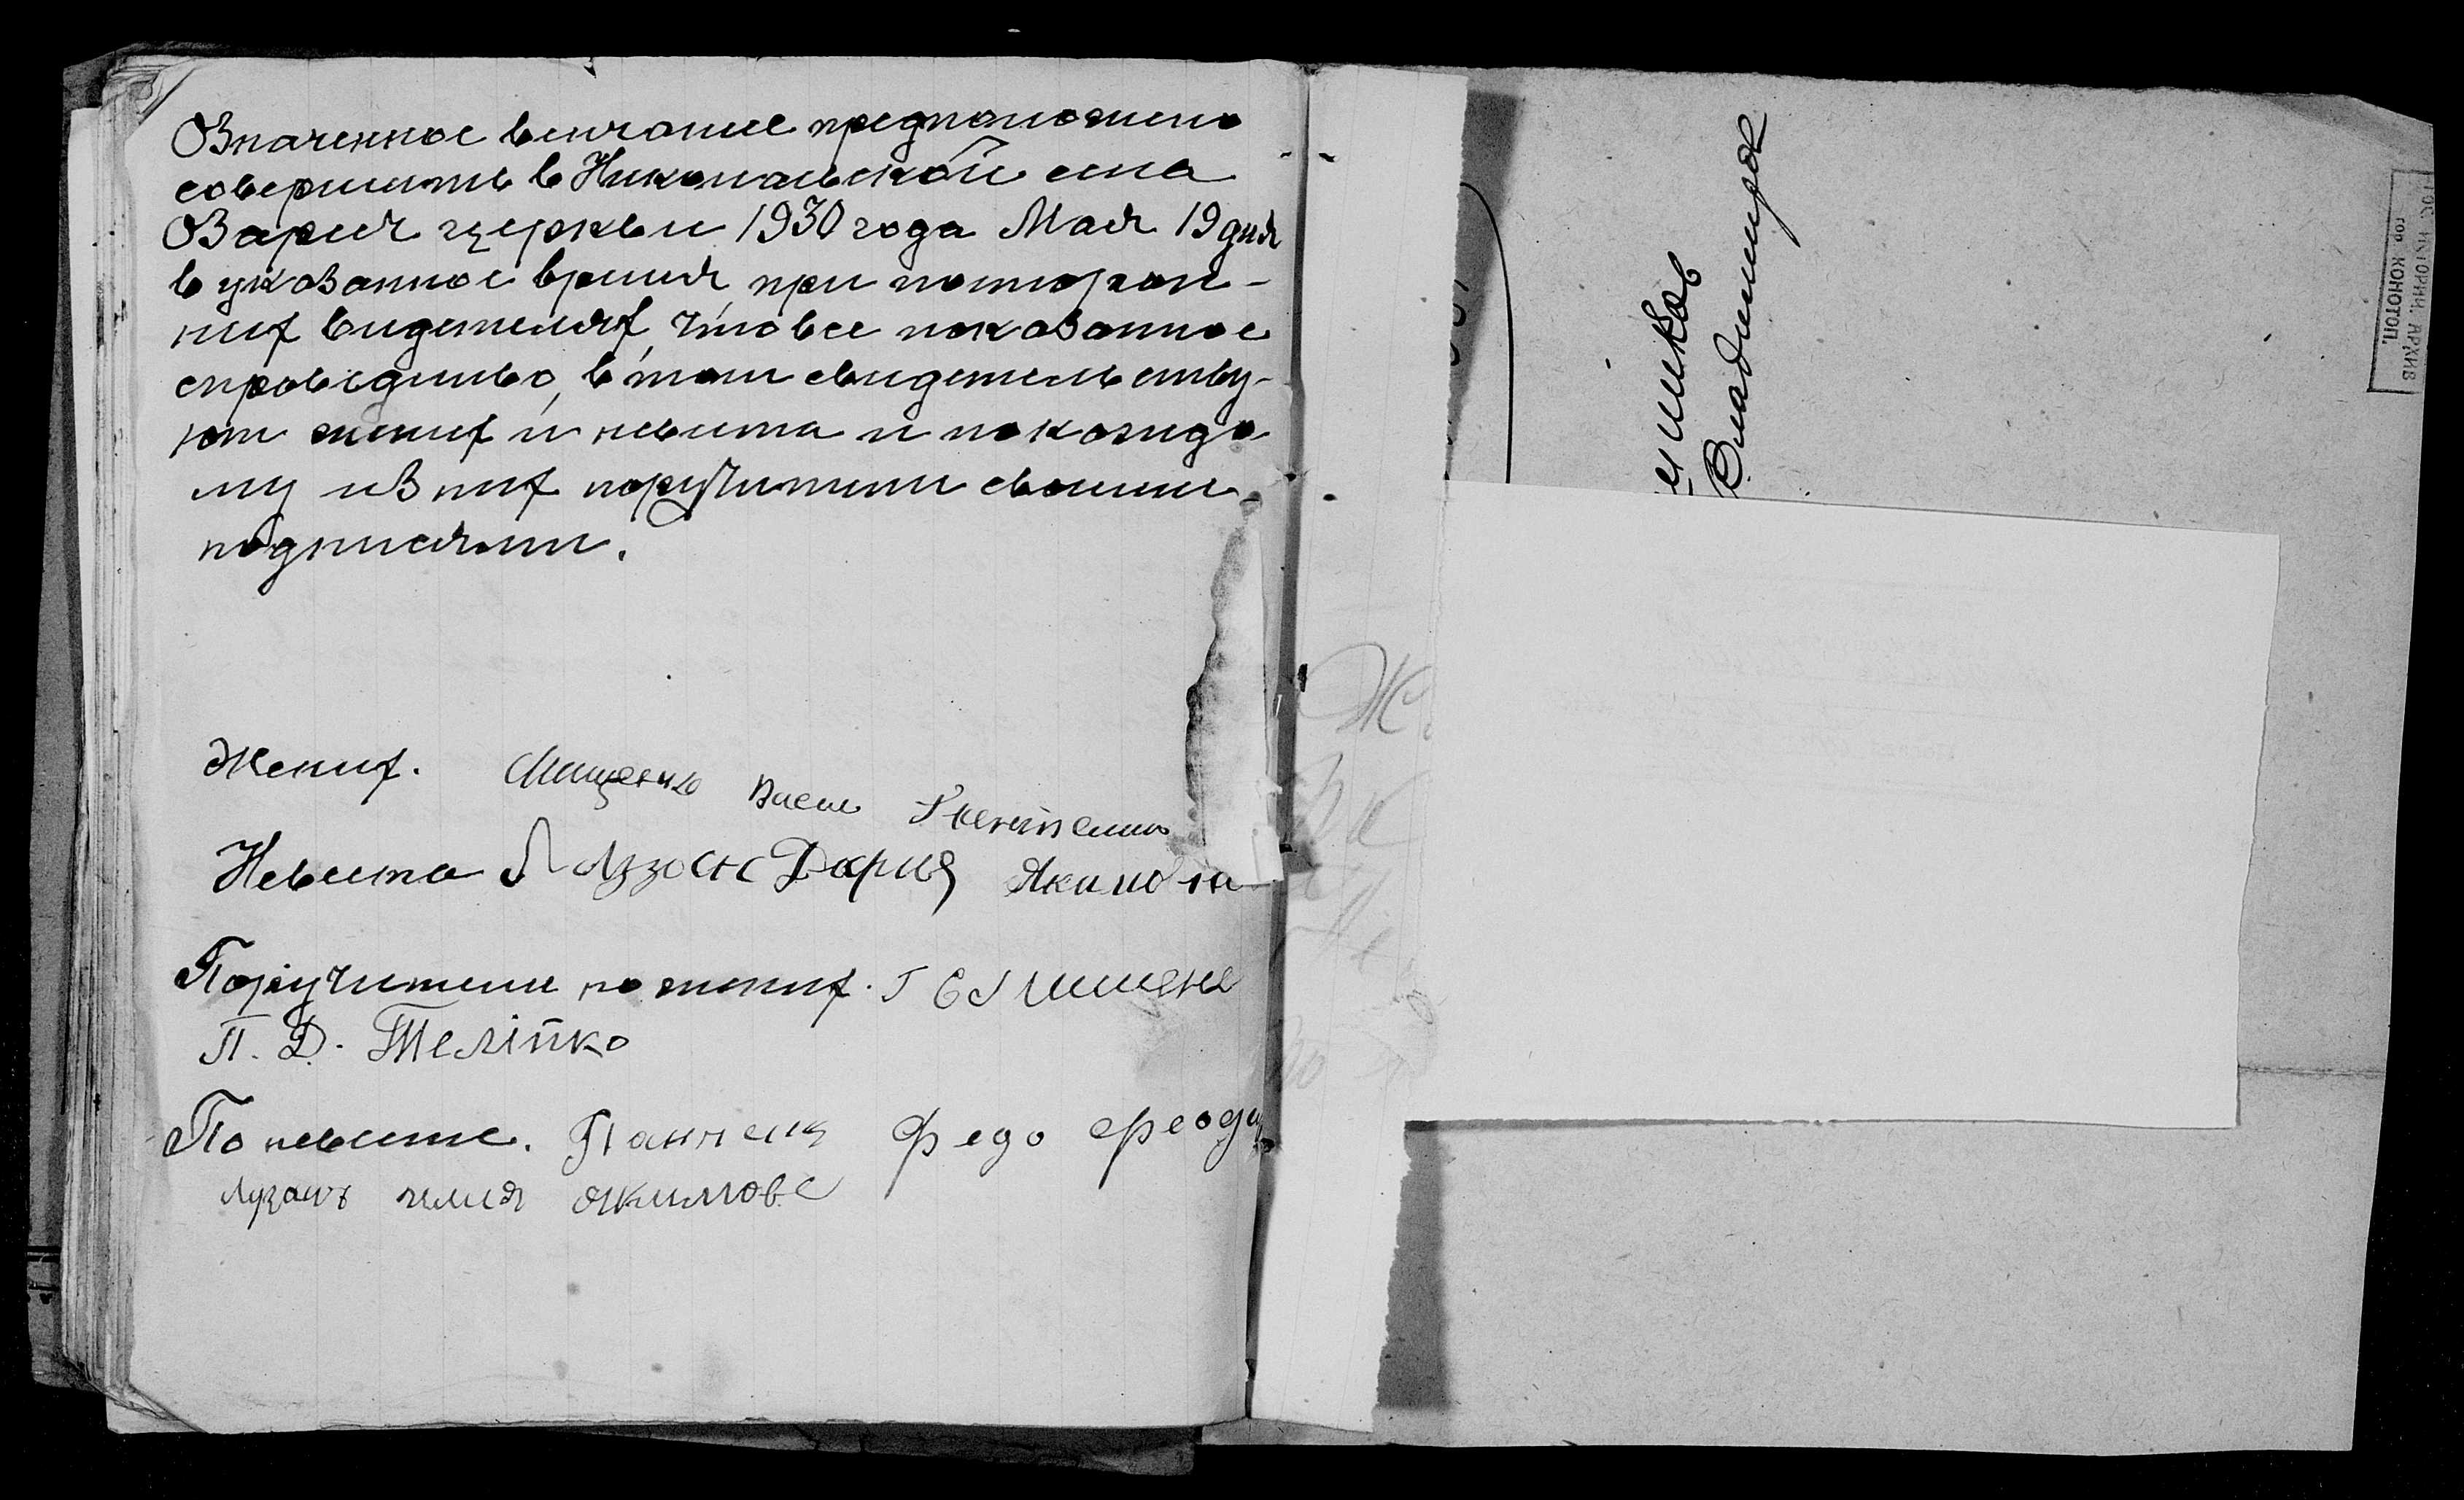 Означенное венчание предположено
совершить в Николаевской села
Озарич церкви 1930 года Мая 19 дня
в указанное время, при посторон-
них свидетелях, что все показанное
справедливо, в том свидетельству-
ют жених и невеста и по каждо-
му из них поручители своими
подписями.
Жених. Мищенко
Невеста Лузан Дария Якимовна
Поручители по жених.
П. Д. Теліпко
По невесте.
Лузанъ Якимове
Владимиров
ГОС. ИСТОРИЧ. АРХИВ
гор. КОНОТОП.